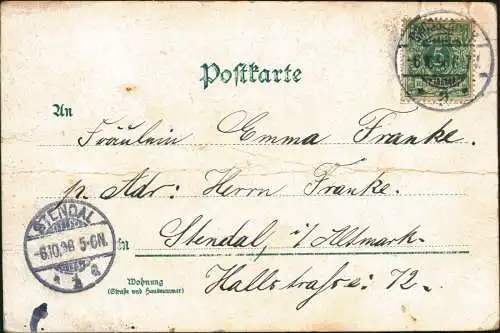 Postkarte
5
An
Fräulein Emma Franke.
p. Adr: Herrn Franke.
STENDAL
-6.10.98 5-6N.
in Stendal, i/Altmark.
Wohnung
(Straße und Hausnummer)
Hallstrasse: 72.